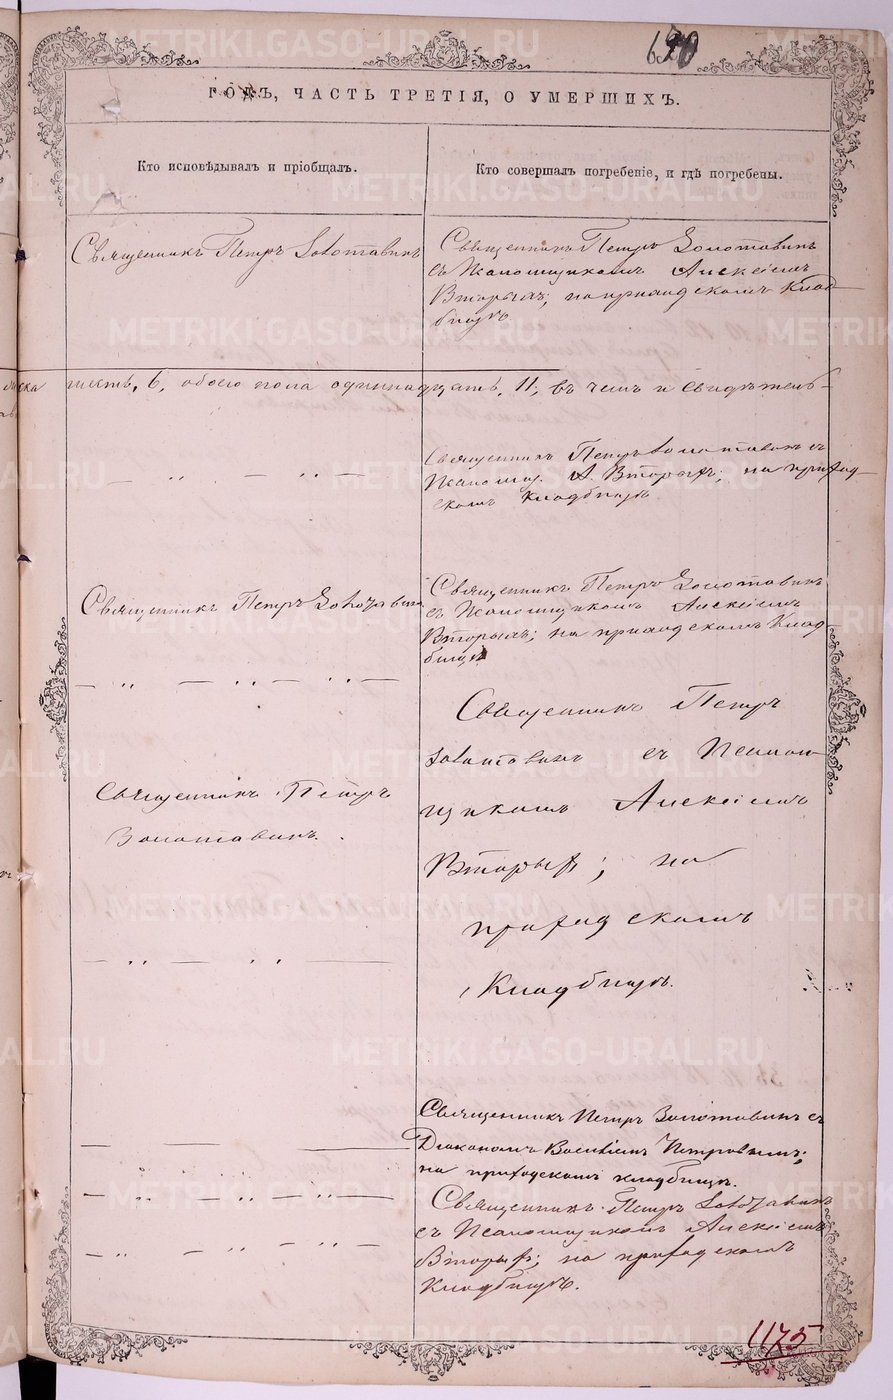 690
ГОДЪ, ЧАСТЬ ТРЕТІЯ, О УМЕРШИХЪ.
Кто исповѣдывалъ и пріобщалъ.
Кто совершалъ погребеніе, и гдѣ погребены.
Священникъ Петръ Золотавинъ
Священникъ Петръ Золотавинъ
съ Псаломщикомъ Алексіемъ
Вторыхъ; на приходскомъ клад-
бищѣ
шесть, 6, обоего пола одиннадцать, 11; въ чемъ и свидѣтель-
Священникъ Петръ Золотавинъ съ
Псаломщ. А. Вторыхъ; на приход-
скомъ кладбищѣ
— „ — „ —
Священникъ Петръ Золотавинъ
Священникъ Петръ Золотавинъ
съ Псаломщикомъ Алексіемъ
Вторыхъ; на приходскомъ клад-
бищѣ
— „ — „ — „ —
Священникъ Петръ
Золотавинъ.
Священникъ Петръ
Золотавинъ съ Псалом-
щикомъ Алексіемъ
Вторыхъ; на
приходскомъ
кладбищѣ.
— „ — „ —
Священникъ Петръ Золотавинъ съ
Діакономъ Василіемъ Петровымъ;
на приходскомъ кладбищѣ.
— „ — „ — „ —
Священникъ Петръ Золотавинъ
съ Псаломщикомъ Алексіемъ
Вторыхъ; на приходскомъ
кладбищѣ.
— „ — „ — „ —
1175
METRIKI.GASO-URAL.RU